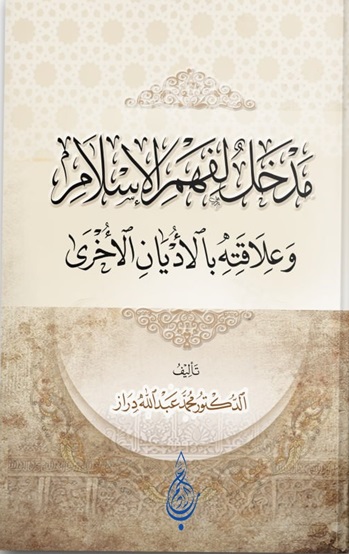 مَدْخَلٌ لِفَهْمِ الإِسْلَامِ
وَعِلَاقَتِهِ بِالأَدْيَانِ الأُخْرَى
تَأليفُ
الدُّكتُور مُحمَّد عَبْد الله دِرَاز